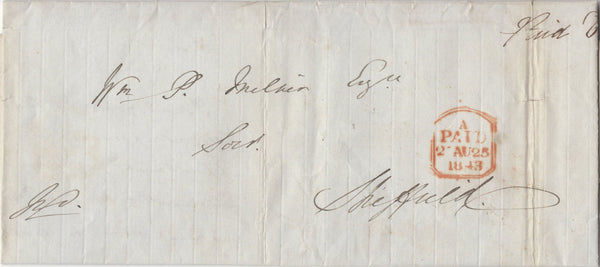 Paid
Wm P. Milner Esqr
Solr.
A
PAID
2 AU 25
1843
Sheffield.